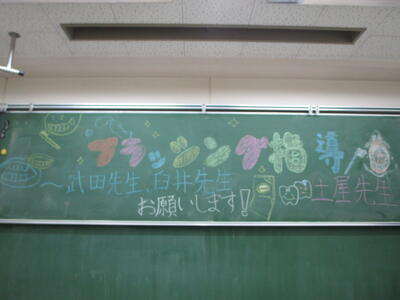 ブラッシング指導
～武田先生、臼井先生
土屋先生
お願いします!